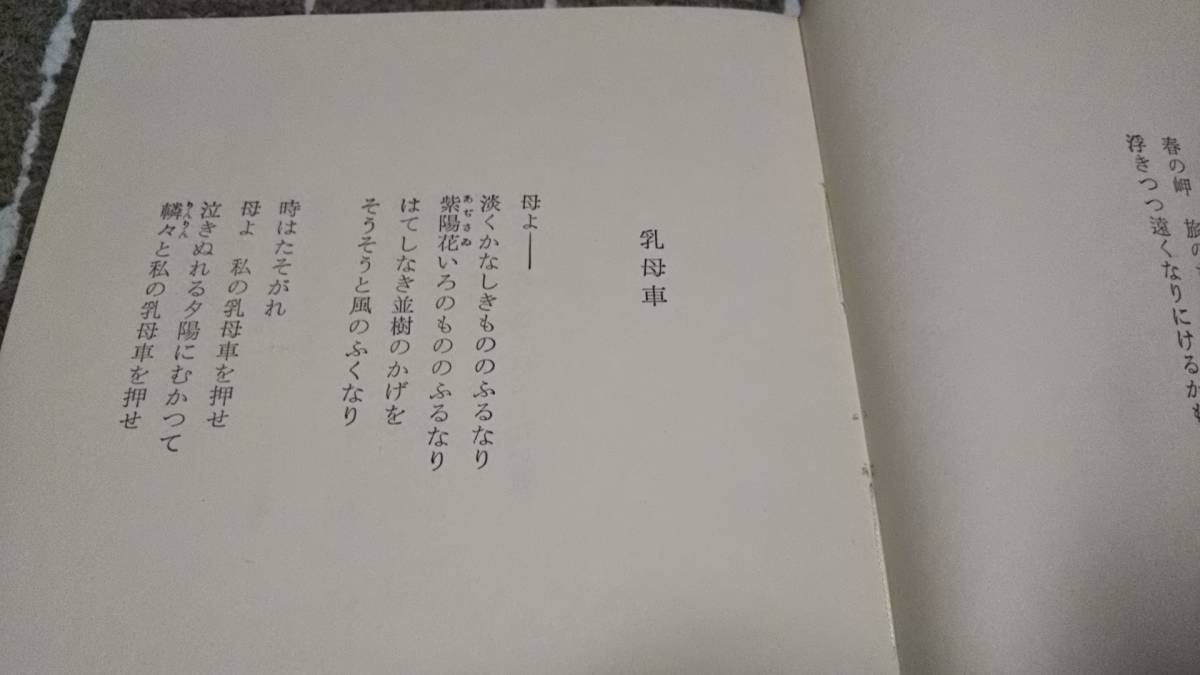 春の岬 旅の
浮きつつ遠くなりにけるかも
乳母車
母よ――
淡くかなしきもののふるなり
紫陽花いろのもののふるなり
あぢさゐ
はてしなき並樹のかげを
そうそうと風のふくなり
時はたそがれ
母よ 私の乳母車を押せ
泣きぬれる夕陽にむかつて
轔々と私の乳母車を押せ
りんりん